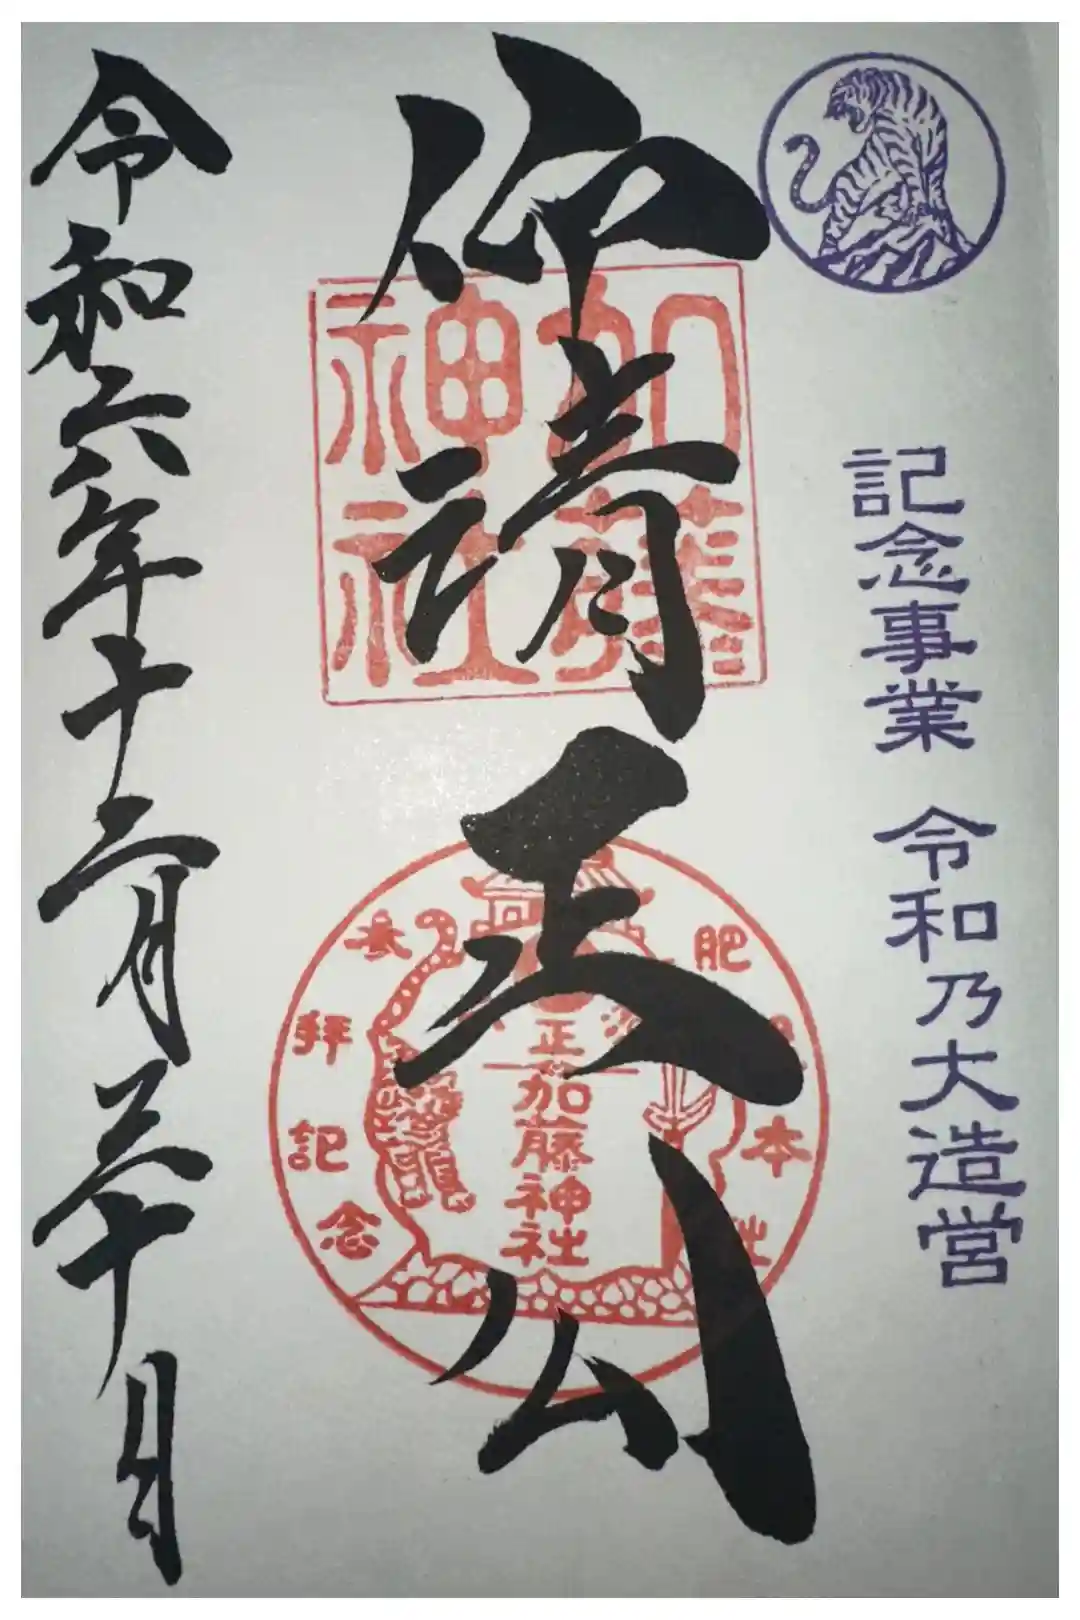 記念事業 令和乃大造営
仰清正公
加藤
神社
肥 本社
参拝記念
正
加藤神社
令和六年十二月三十日